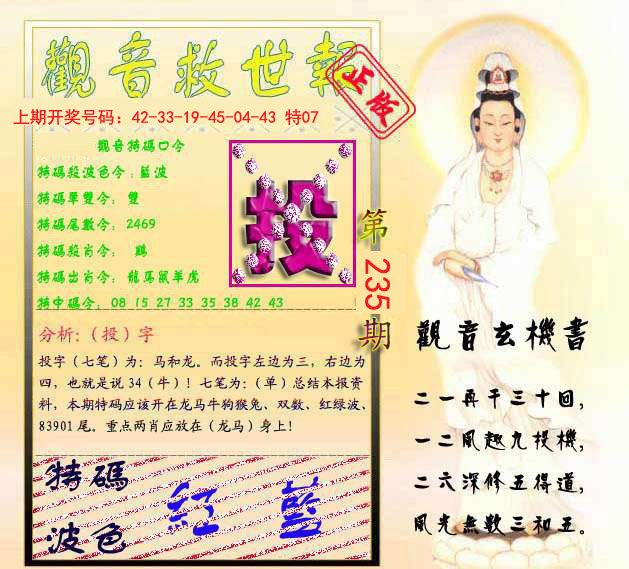 觀音救世報
正版
上期开奖号码：42-33-19-45-04-43 特07
觀音特碼口令
特碼殺波色令：藍波
特碼單雙令： 雙
特碼尾數令：2469
特碼殺肖令： 鷄
特碼出肖令：龍馬鼠羊虎
特中碼令：08 15 27 33 35 38 42 43
投
第235期
分析:（投）字
投字（七笔）为：马和龙。而投字左边为三，右边为
四，也就是说 34（牛）！七笔为：（单）总结本报资
料，本期特码应该开在龙马牛狗猴兔、双数、红绿波、
83901 尾。重点两肖应放在（龙马）身上！
特碼
波色
紅 藍
觀音玄機書
二一再干三十回，
一二風趣九投機，
二六深修五得道，
風光無數三和五。